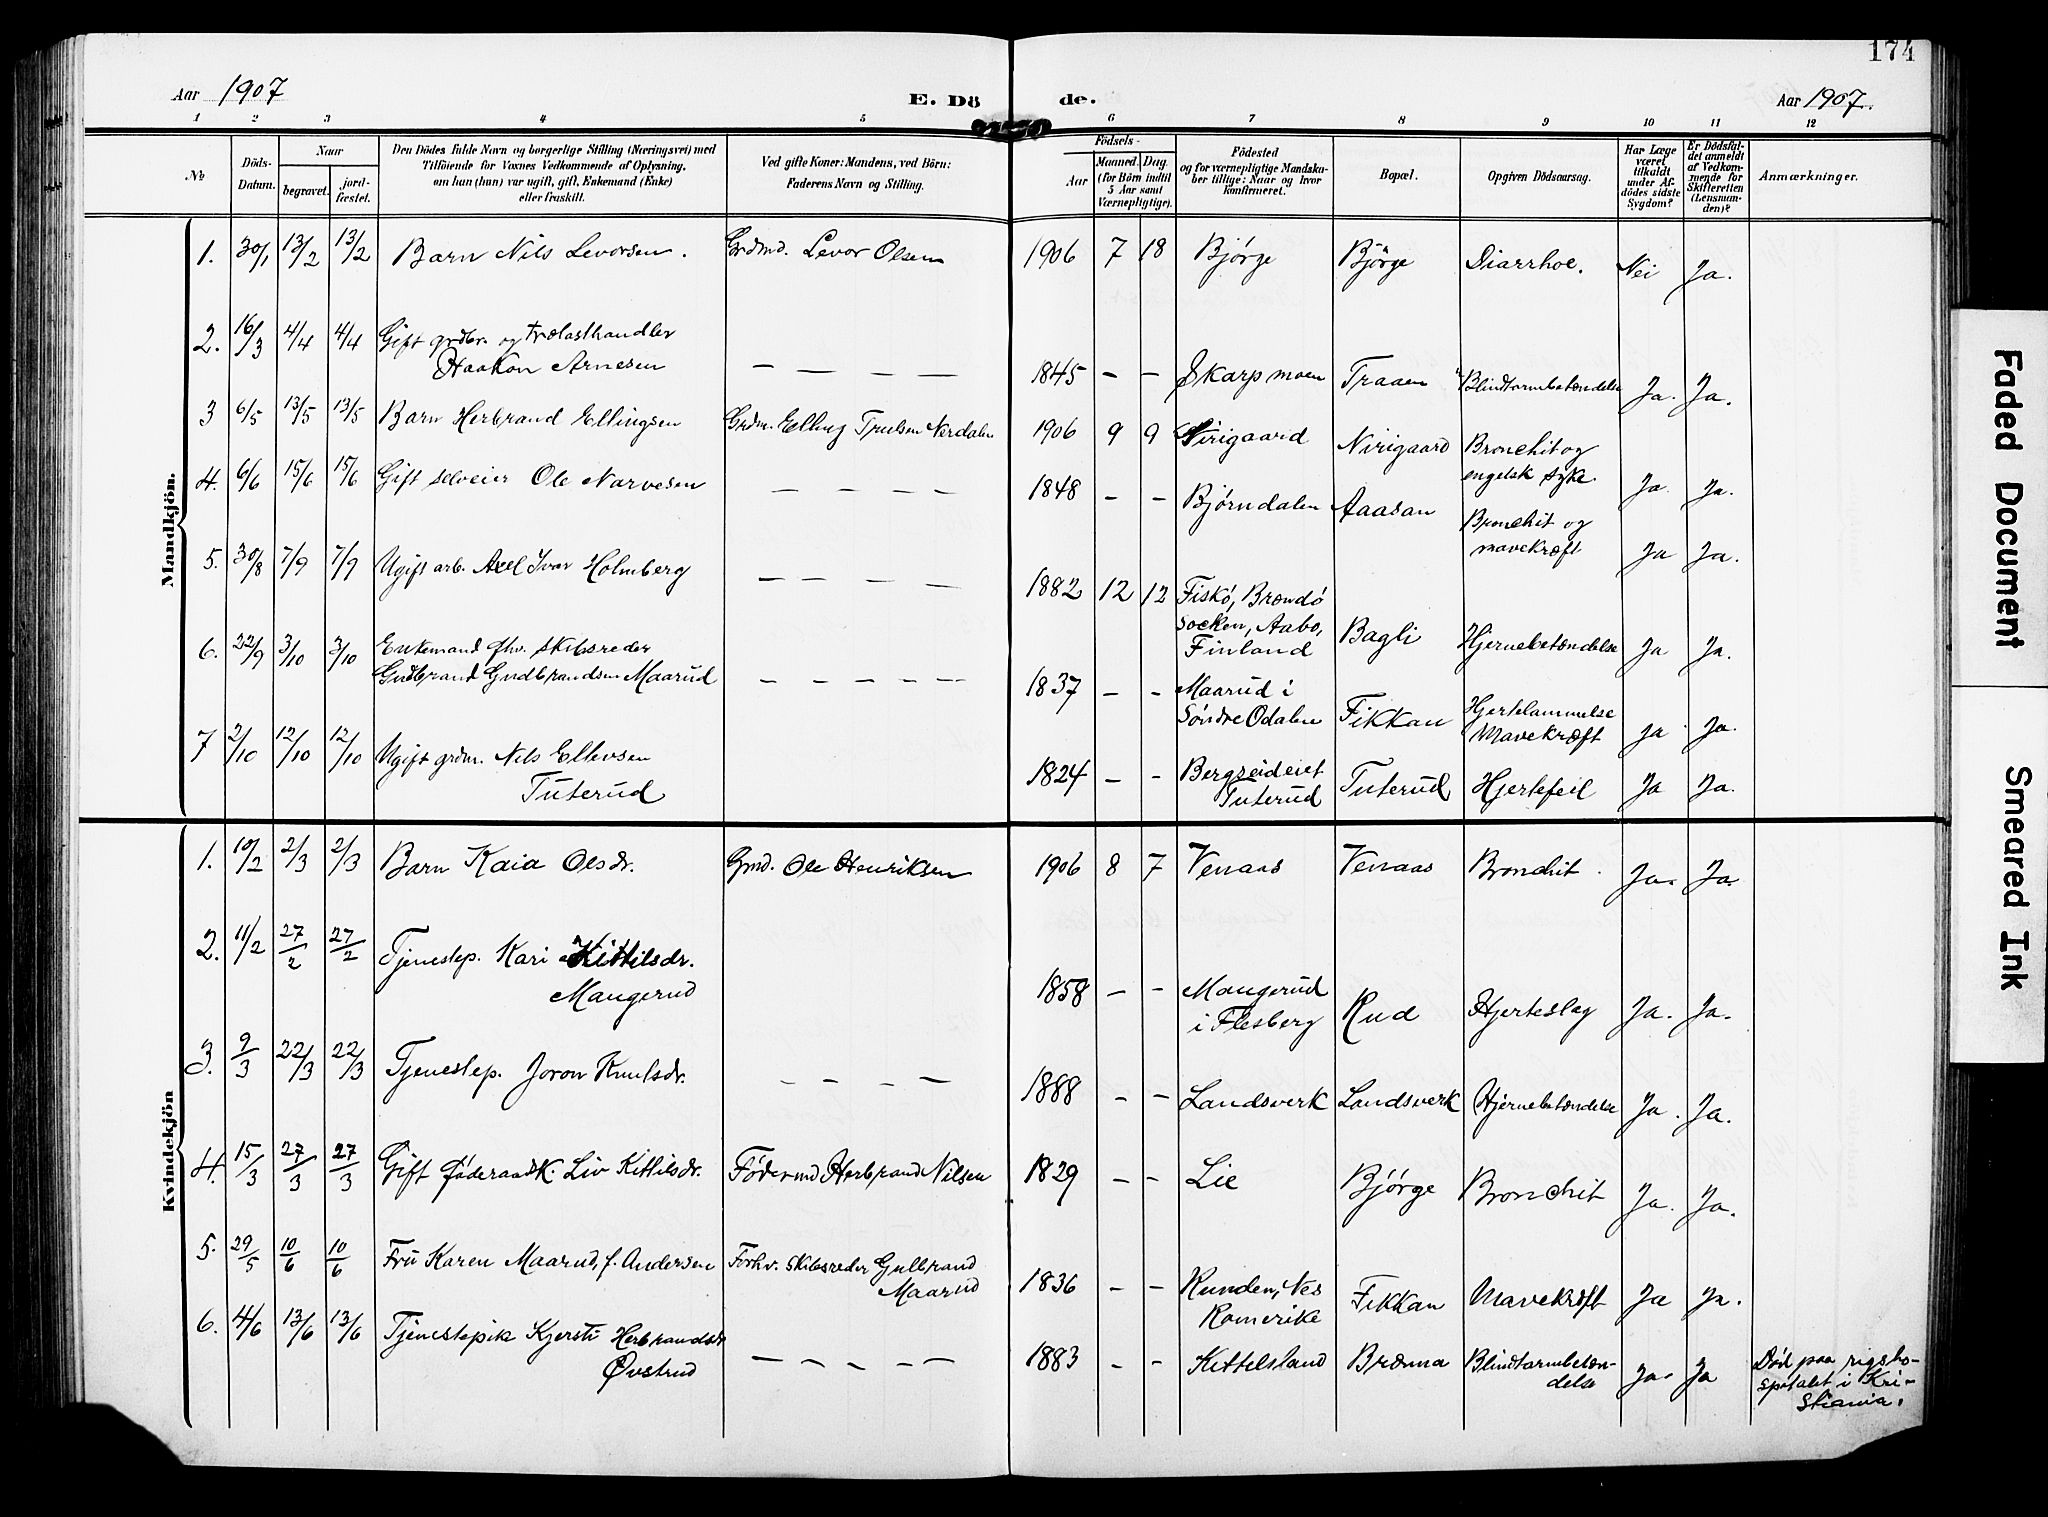 174
Aar 1907
E. Dö de.
Aar 1907.
1 2 3 4 5 6 7 8 9 10 11 12
No
Döds-Datum.
Naar
begravet.
jord-fæstet.
Den Dödes fulde Navn og borgerlige Stilling (Næringsvei) med
Tilföiende for Voxnes Vedkommende af Oplysning,
om han (hun) var ugift, gift, Enkemand (Enke)
eller fraskilt.
Ved gifte Koner: Mandens, ved Börn:
Faderens Navn og Stilling.
Födsels-
Aar
Maaned. Dag.
(for Börn indtil
5 Aar samt
Værnepligtige).
Födested
og for værnepligtige Mandska-
ber tillige: Naar og hvor
konfirmeret.
Bopæl.
Opgiven Dödsaarsag.
Har Læge
været
tilkaldt
under Af-
dödes sidste
Sygdom?
Er Dödsfal-
det anmeldt
af Vedkom-
mende for
Skifteretten
(Lensman-
den)?
Anmærkninger.
Mandkjön.
1. 30/1 13/2 13/2 Barn Nils Levorsen. Grdmd. Levor Olsen 1906 7 18 Bjørge Bjørge Diarrhoe. Nei Ja.
2. 16/3 4/4 4/4 Gift grdbr. og trælasthandler
Haakon Arnesen — — — — 1845 — — Skarpmoen Traaen Blindtarmbetændelse Ja. Ja.
3 6/5 13/5 13/5 Barn Herbrand Ellingsen Grdm. Elling Trulsen Nerdalen 1906 9 9 Nirigaard Nirigaard Bronchit og
engelsk syke. Ja. Ja.
4. 6/6 15/6 15/6 Gift selveier Ole Narvesen — — — — 1848 — — Bjørndalen Aaasan Bronchit og
mavekræft Ja Ja.
5. 30/8 7/9 7/9 Ugift arb. Axel Ivar Holmberg — — — — 1882 12 12 Fiskö, Brændö
socken, Aabo,
Finland Bagli Hjernebetændelse Ja Ja.
6. 22/9 3/10 3/10 Enkemand fhv. skibsreder
Gudbrand Gudbrandsen Maarud — — — — — 1837 — — Maarud i
Søndre Odalen Fikkan Hjertelammelse
Mavekræft Ja Ja.
7 2/10 12/10 12/10 Ugift grdm. Nils Ellevsen
Tuterud 1824 — — Bergseideiet
Tuterud Tuterud Hjertefeil Ja Ja.
Kvindekjön
1. 10/2 2/3 2/3 Barn Kaia Olsdr. Gmd. Ole Henriksen 1906 8 7 Venaas Venaas Bronchit. Ja. Ja.
2. 11/2 27/2 27/2 Tjenestep. Kari Kittilsdr.
Mangerud 1858 — — Mangerud
i Flesberg Rud Hjerteslag Ja. Ja.
3. 9/3 22/3 22/3 Tjenestep. Joron Knutsdr. — — — — 1888 — — Landsverk Landsverk Hjernebetændelse Ja. Ja.
4. 15/3 27/3 27/3 Gift føderaadsk. Liv Kittilsdr. Föd md Herbrand Nilsen 1829 — — Lie Bjørge Bronchit Ja. Ja.
5. 29/5 10/6 10/6 Fru Karen Maarud, f. Andersen Forhv. skibsreder Gulbrand
Maarud 1836 — — Runden, Nes
Romerike Fikkan Mavekræft Ja Ja.
6. 4/6 13/6 13/6 Tjenestepike Kjersti Herbrandsdr
Øvstrud — — — — 1883 — — Kittelsland Brænna Blindtarmbetæn-
delse Ja. Ja Död paa rigsho-
spitalet i Kri-
stiania.
Faded Document
Smeared Ink